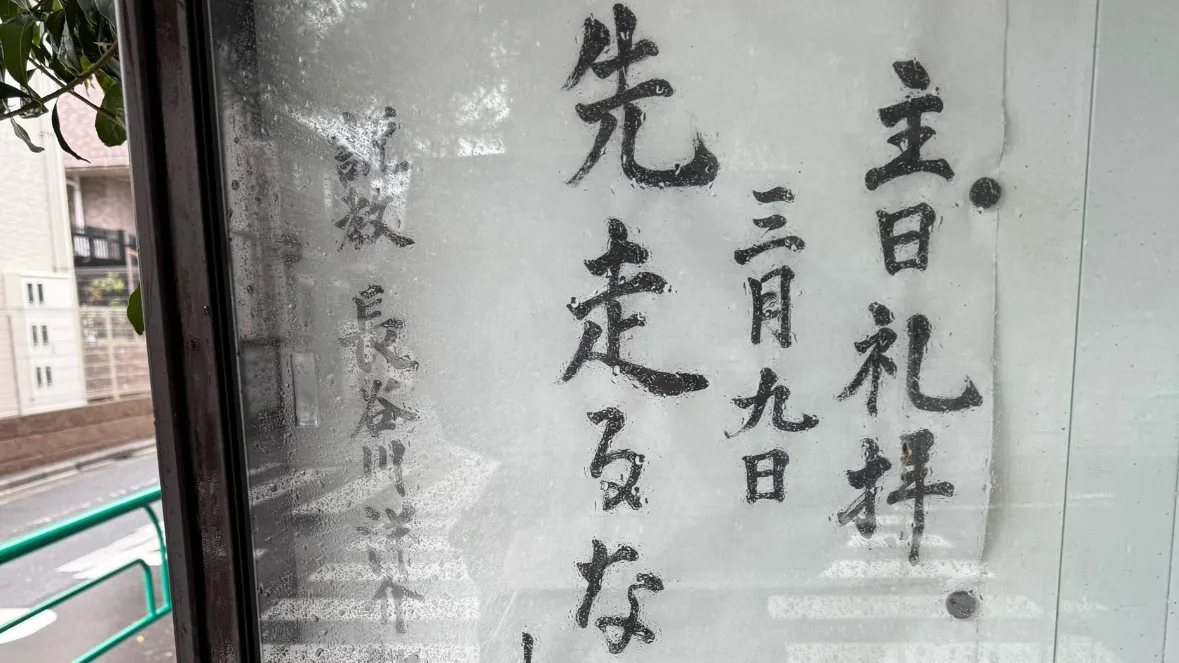 主日礼拝
三月九日
先走るな
説教 長谷川洋介